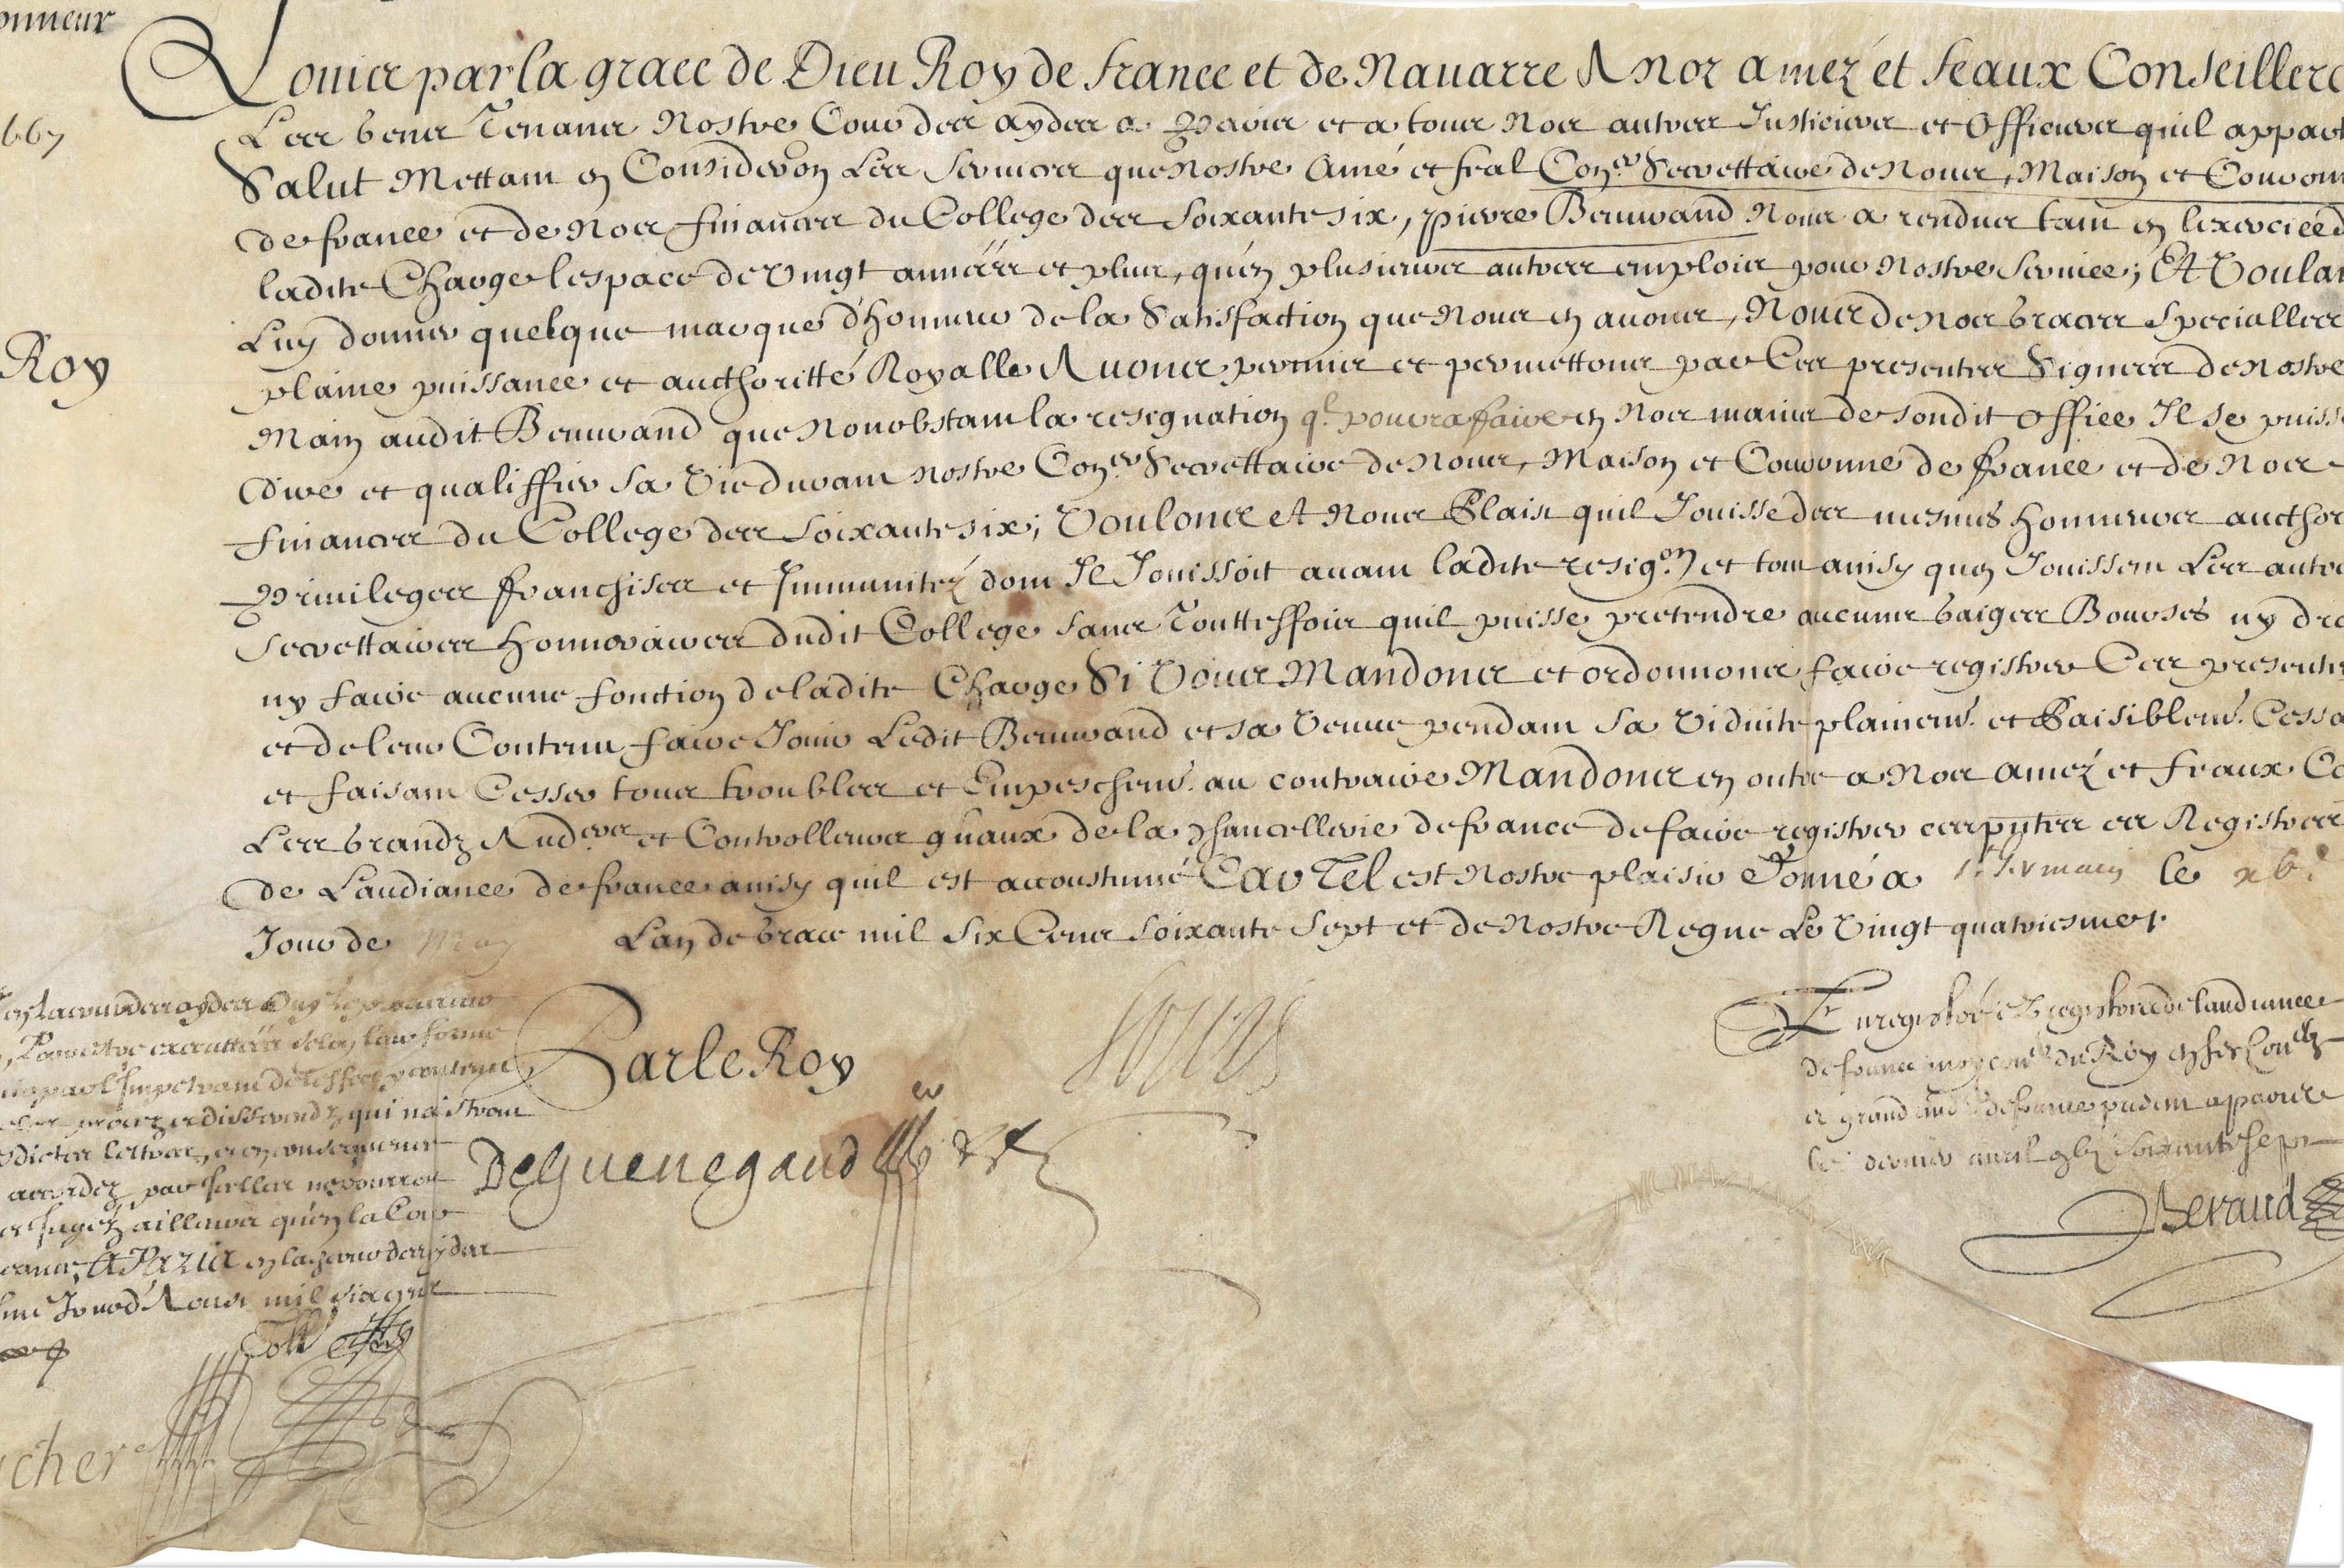 onneur
Louis par la grace de Dieu Roy de france et de Nauarre A nos amez et feaux Conseillers
1667
Les gens Tenans Nostre Cour des aydes a Paris et a tous Nos autres Justiciers et Officiers quil appart
Salut Mettant en Consideron Les seruices que Nostre Amé et feal Coner Secrettaire de Nous, Maison et Couronn
de france et de Nos finances du College des soixante six, pierre Berruand Nous a rendus tant en lexercice d
ladite Charge lespace de Vingt années et plus, qu'en plusieurs autres emplois pour Nostre seruice; Et Voulan
Luy donner quelque marque d'honneur de la Satisfaction que Nous en auons, Nous de Nos graces specialles
Roy
plaine puissance et aucthoritté Royalle Auons permis et permettons par Ces presentes Signées de Nostre
Main audit Berruand que Nonobstant la resignation ql pourra faire en Nos mains de sondit office Il se puisse
dire et qualiffier sa Vie durant Nostre Coner Secrettaire de Nous, Maison et Couronne de france et de Nos
finances du College des soixante six; Voulons et Nous Plaist quil Jouisse des mesmes honneurs aucthor
Priuileges franchises et Immunitez dont Il Jouissoit auant ladite resigon et tout ainsy quen Jouissent Les autre
Secrettaires honnoraires dudit College sans Touttesfois quil puisse pretendre aucuns gaiges Bourses ny dro
ny faire aucune fonction de ladite Charge Si Vous Mandons et ordonnons faire registrer Ces presente
et de leur Contenu faire Jouir Ledit Berruand et sa Veuue pendant sa Viduité plainemt et Paisiblemt Cessa
et faisant Cesser tous troubles et Empeschemt au contraire Mandons en outre a Nos amez et feaux Co
Les grandz Auders et Controlleurs gnaux de la chancellerie de france de faire registrer ces pntes es Registres
de Laudiance de france ainsy quil est accoustumé Car Tel est Nostre plaisir Donné a St Germain le xbe
Jour de May Lan de grace mil six Cens soixante Sept et de Nostre Regne Le Vingt quatriesme
Par le Roy
Louis
De Guenegaud
en la cour des aydes
executtées selon leur forme
Impetrant de leffect y contenu
qui naistront
lettres, et en consequence
accordez par icelles ne pourront
Jugez ailleurs qu'en la Cour
A Paris en la cour des aydes
Jour d'Aoust mil six cens
cher
Enregistré es registres de laudiance
de france moy Coner du Roy en ses Conlz
et grand aud de france present a paris
le dernier auril gbc soixante sept
Beraud